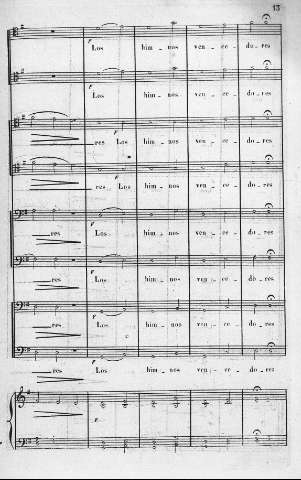 13
Los him_nos ven_ce_do_res
Los him_nos ven_ce_do_res
_res Los him_nos ven_ce_do_res
_res Los him_nos ven_ce_do_res
_res Los him_nos ven_ce_do_res
_res Los him_nos ven_ce_do_res
_res Los him_nos ven_ce_do_res
_res Los him_nos ven_ce_do_res